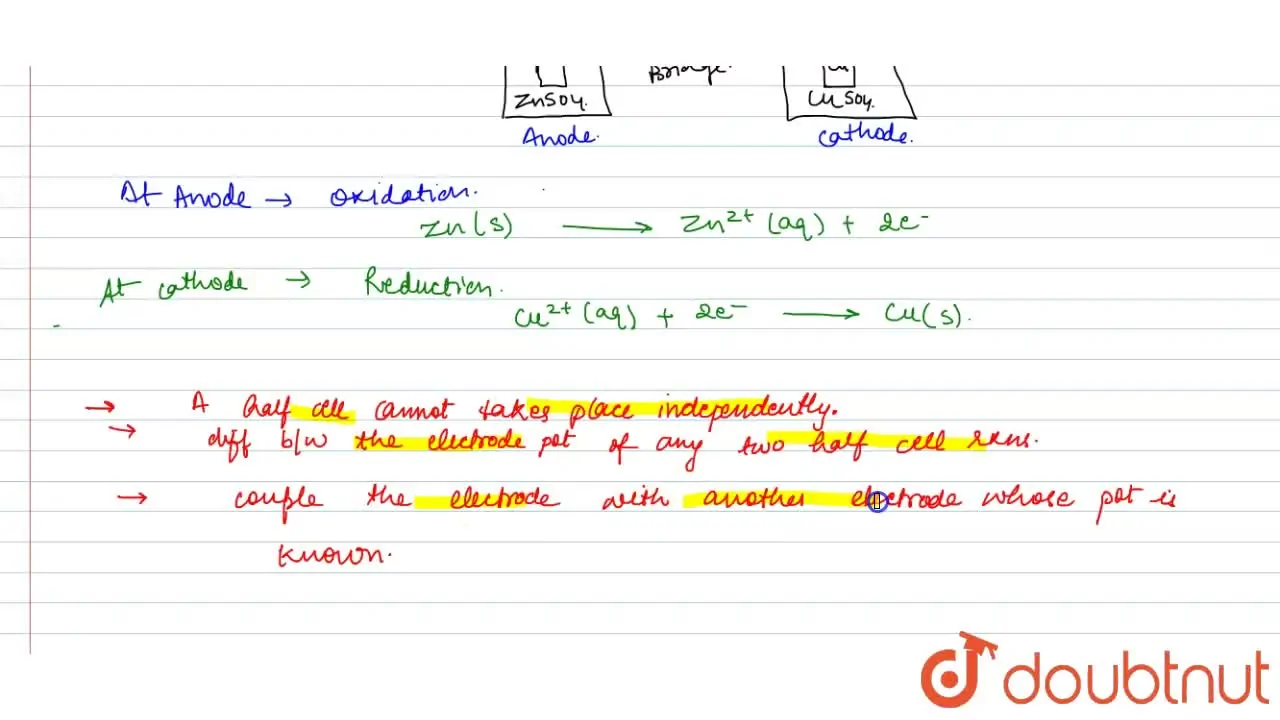 Bridge.
Cu
ZnSO4.
CuSO4.
Anode.
Cathode.
At Anode → Oxidation.
Zn(s) → Zn²⁺ (aq) + 2e⁻
At cathode → Reduction.
Cu²⁺ (aq) + 2e⁻ → Cu(s).
→ A half cell cannot takes place independently.
→ diff b/w the electrode pot of any two half cell rxns.
→ couple the electrode with another electrode whose pot is
known.
doubtnut